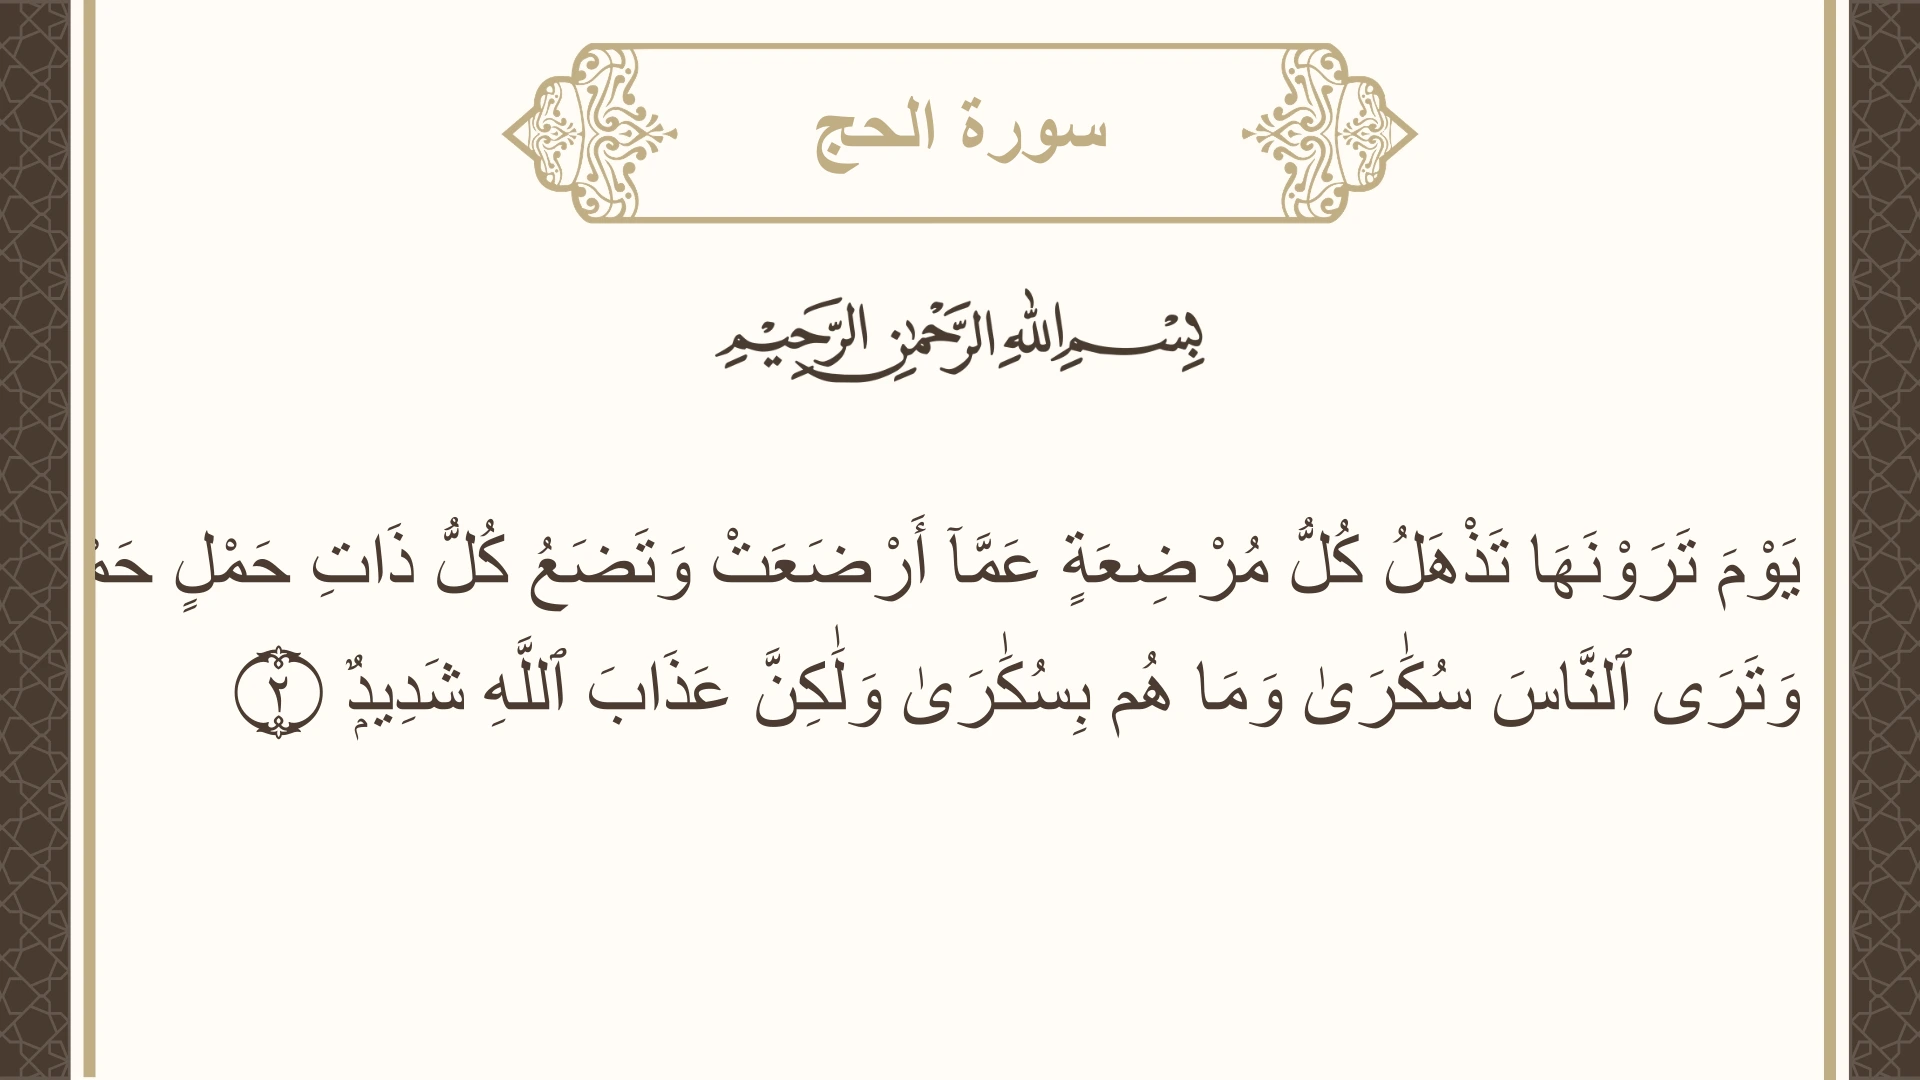 سورة الحج
بِسْمِ اللهِ الرَّحْمٰنِ الرَّحِيْمِ
يَوْمَ تَرَوْنَهَا تَذْهَلُ كُلُّ مُرْضِعَةٍ عَمَّآ أَرْضَعَتْ وَتَضَعُ كُلُّ ذَاتِ حَمْلٍ
وَتَرَى ٱلنَّاسَ سُكَٰرَىٰ وَمَا هُم بِسُكَٰرَىٰ وَلَٰكِنَّ عَذَابَ ٱللَّهِ شَدِيذٌۭ ٢